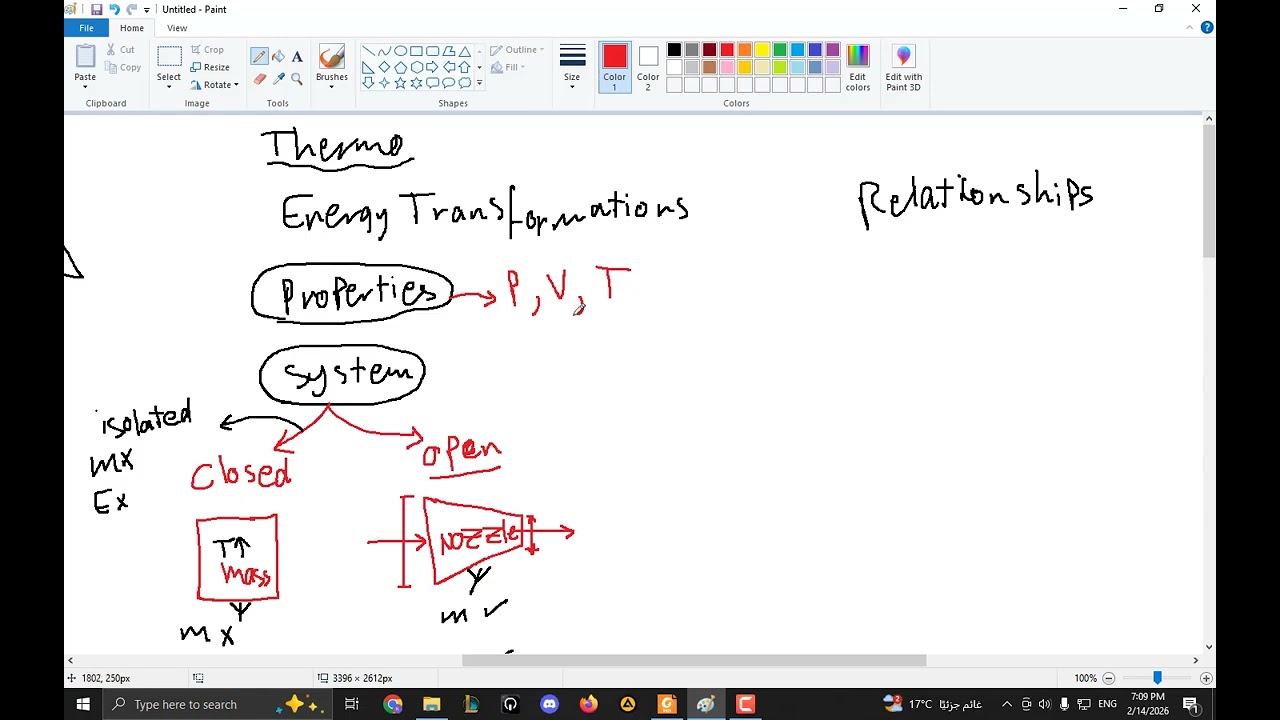 Untitled - Paint
File Home View
Paste
Cut
Copy
Clipboard
Select
Crop
Resize
Rotate
Image
A
Tools
Brushes
Shapes
Outline
Fill
Size
Color 1
Color 2
Colors
Edit colors
Edit with Paint 3D
Thermo
Energy Transformations
Relationships
Properties
P, V, T
System
isolated
mx
Ex
Closed
open
T↑
mass
Nozzle
m x
m ✓
1802, 250px
3396 × 2612px
100%
Type here to search
2
17°C غائم جزئيًا
ENG
7:09 PM
2/14/2026
1